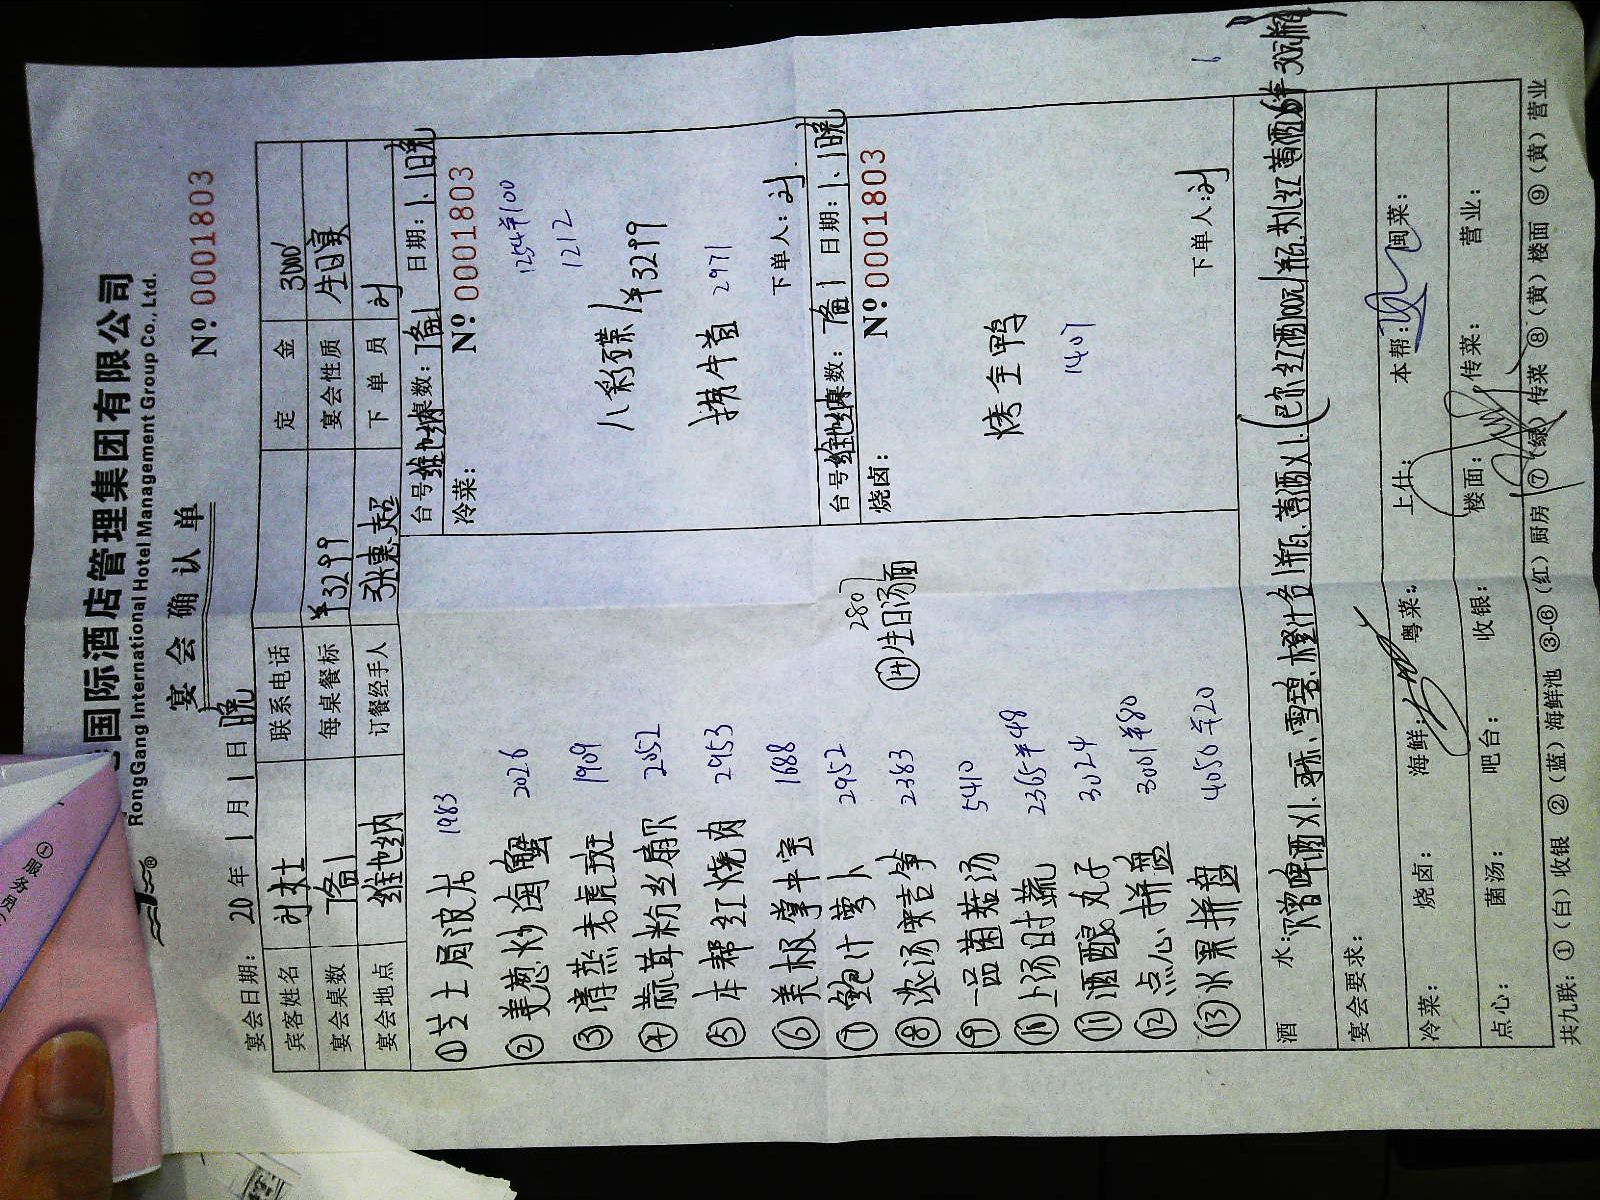 国际酒店管理集团有限公司
RongGang International Hotel Management Group Co., Ltd.
宴会确认单
№ 0001803
宴会日期: 20 年 1 月 1 日 晚
宾客姓名 联系电话 定金 3000
宴会桌数 1备1 每桌餐标 ¥3299 宴会性质 生日宴
宴会地点 维也纳 订餐经手人 张惠超 下单员 刘
①芝士局波龙 1983
②姜葱炒海蟹 2026
③清蒸老虎斑 1909
④蒜茸粉丝扇贝 2052
⑤本帮红烧肉 2953
⑥美极掌中宝 1688
⑦鲍汁萝卜 2952
⑧浓汤夹吉笋 2383
⑨一品菌菇汤 5410
⑩上汤时蔬 2365 ¥48
⑪酒酿丸子 3024
⑫点心拼盘 3001 ¥80
⑬水果拼盘 4050 ¥20
⑭生日汤面 2807
台号 维也纳 桌数: 1备1 日期: 1.1晚
冷菜: № 0001803
1254 ¥100
1212
八彩碟 / ¥3299
捞牛首 2971
下单人: 刘
台号 维也纳 桌数: 1备1 日期: 1.1晚
烧卤: № 0001803
烤全鸭
1407
下单人: 刘
酒水: 赠啤酒X1.可乐.雪碧.橙汁各1瓶.黄酒X1.
宴会要求:
冷菜: 烧卤: 海鲜: 粤菜: 上什: 本帮: 闽菜:
点心: 菌汤: 吧台: 收银: 楼面: 传菜: 营业:
共九联: ①(白)收银 ②(蓝)海鲜池 ③-⑥(红)厨房 ⑦(绿)传菜 ⑧(黄)楼面 ⑨(黄)营业